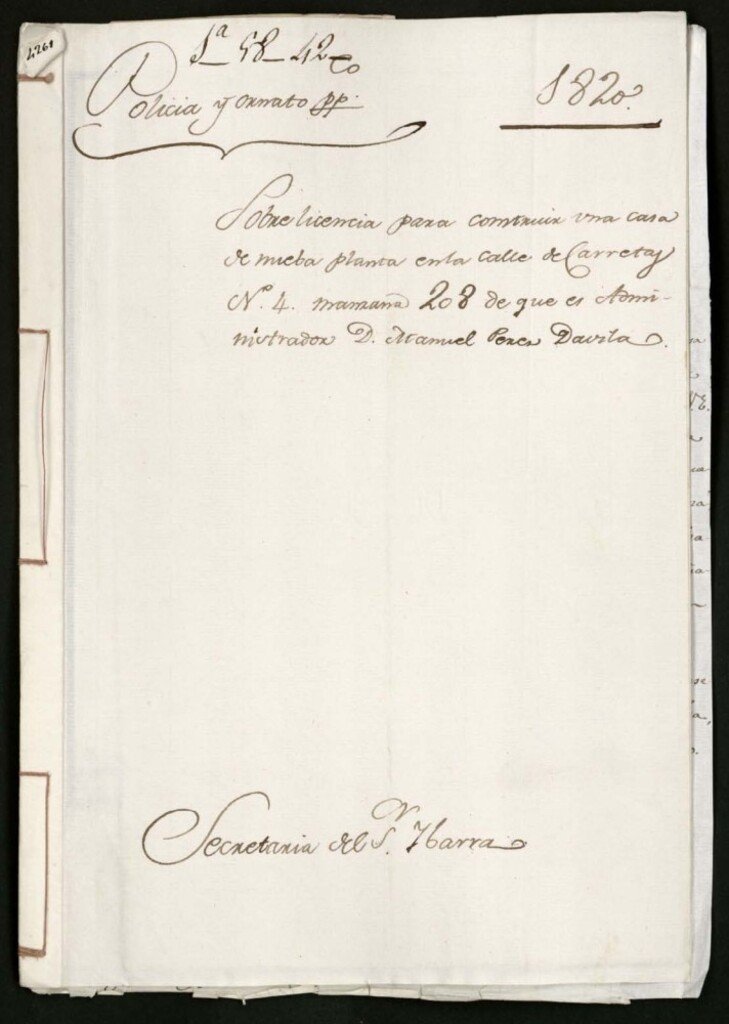 4261
1ª 58-42
Policia y ornato pp.
1820.
Sobre licencia para construir una casa
de nueba planta en la calle de Carretas
N.º 4. manzana 208 de que es Admi-
nistrador D. Manuel Perez Davila.
Secretaria del S.ʳ Ybarra